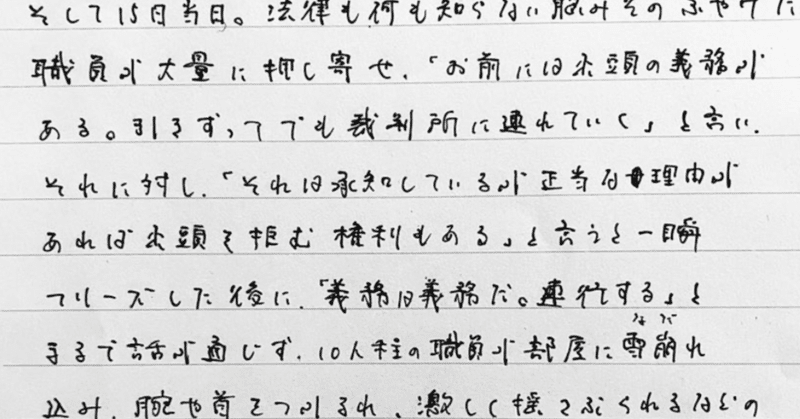 そして15日当日。法律も何も知らない脳みそのふやけた
職員が大量に押し寄せ、「お前には出頭の義務が
ある。引きずってでも裁判所に連れていく」と言い、
それに対し、「それは承知しているが正当な理由が
あれば出頭を拒む権利もある」と言うと一瞬
フリーズした後に、「義務は義務だ。連行する」と
まるで話が通じず、10人程の職員が部屋に雪崩れ
なだ
込み、腕や首をつかまれ、激しく揺さぶられるなどの